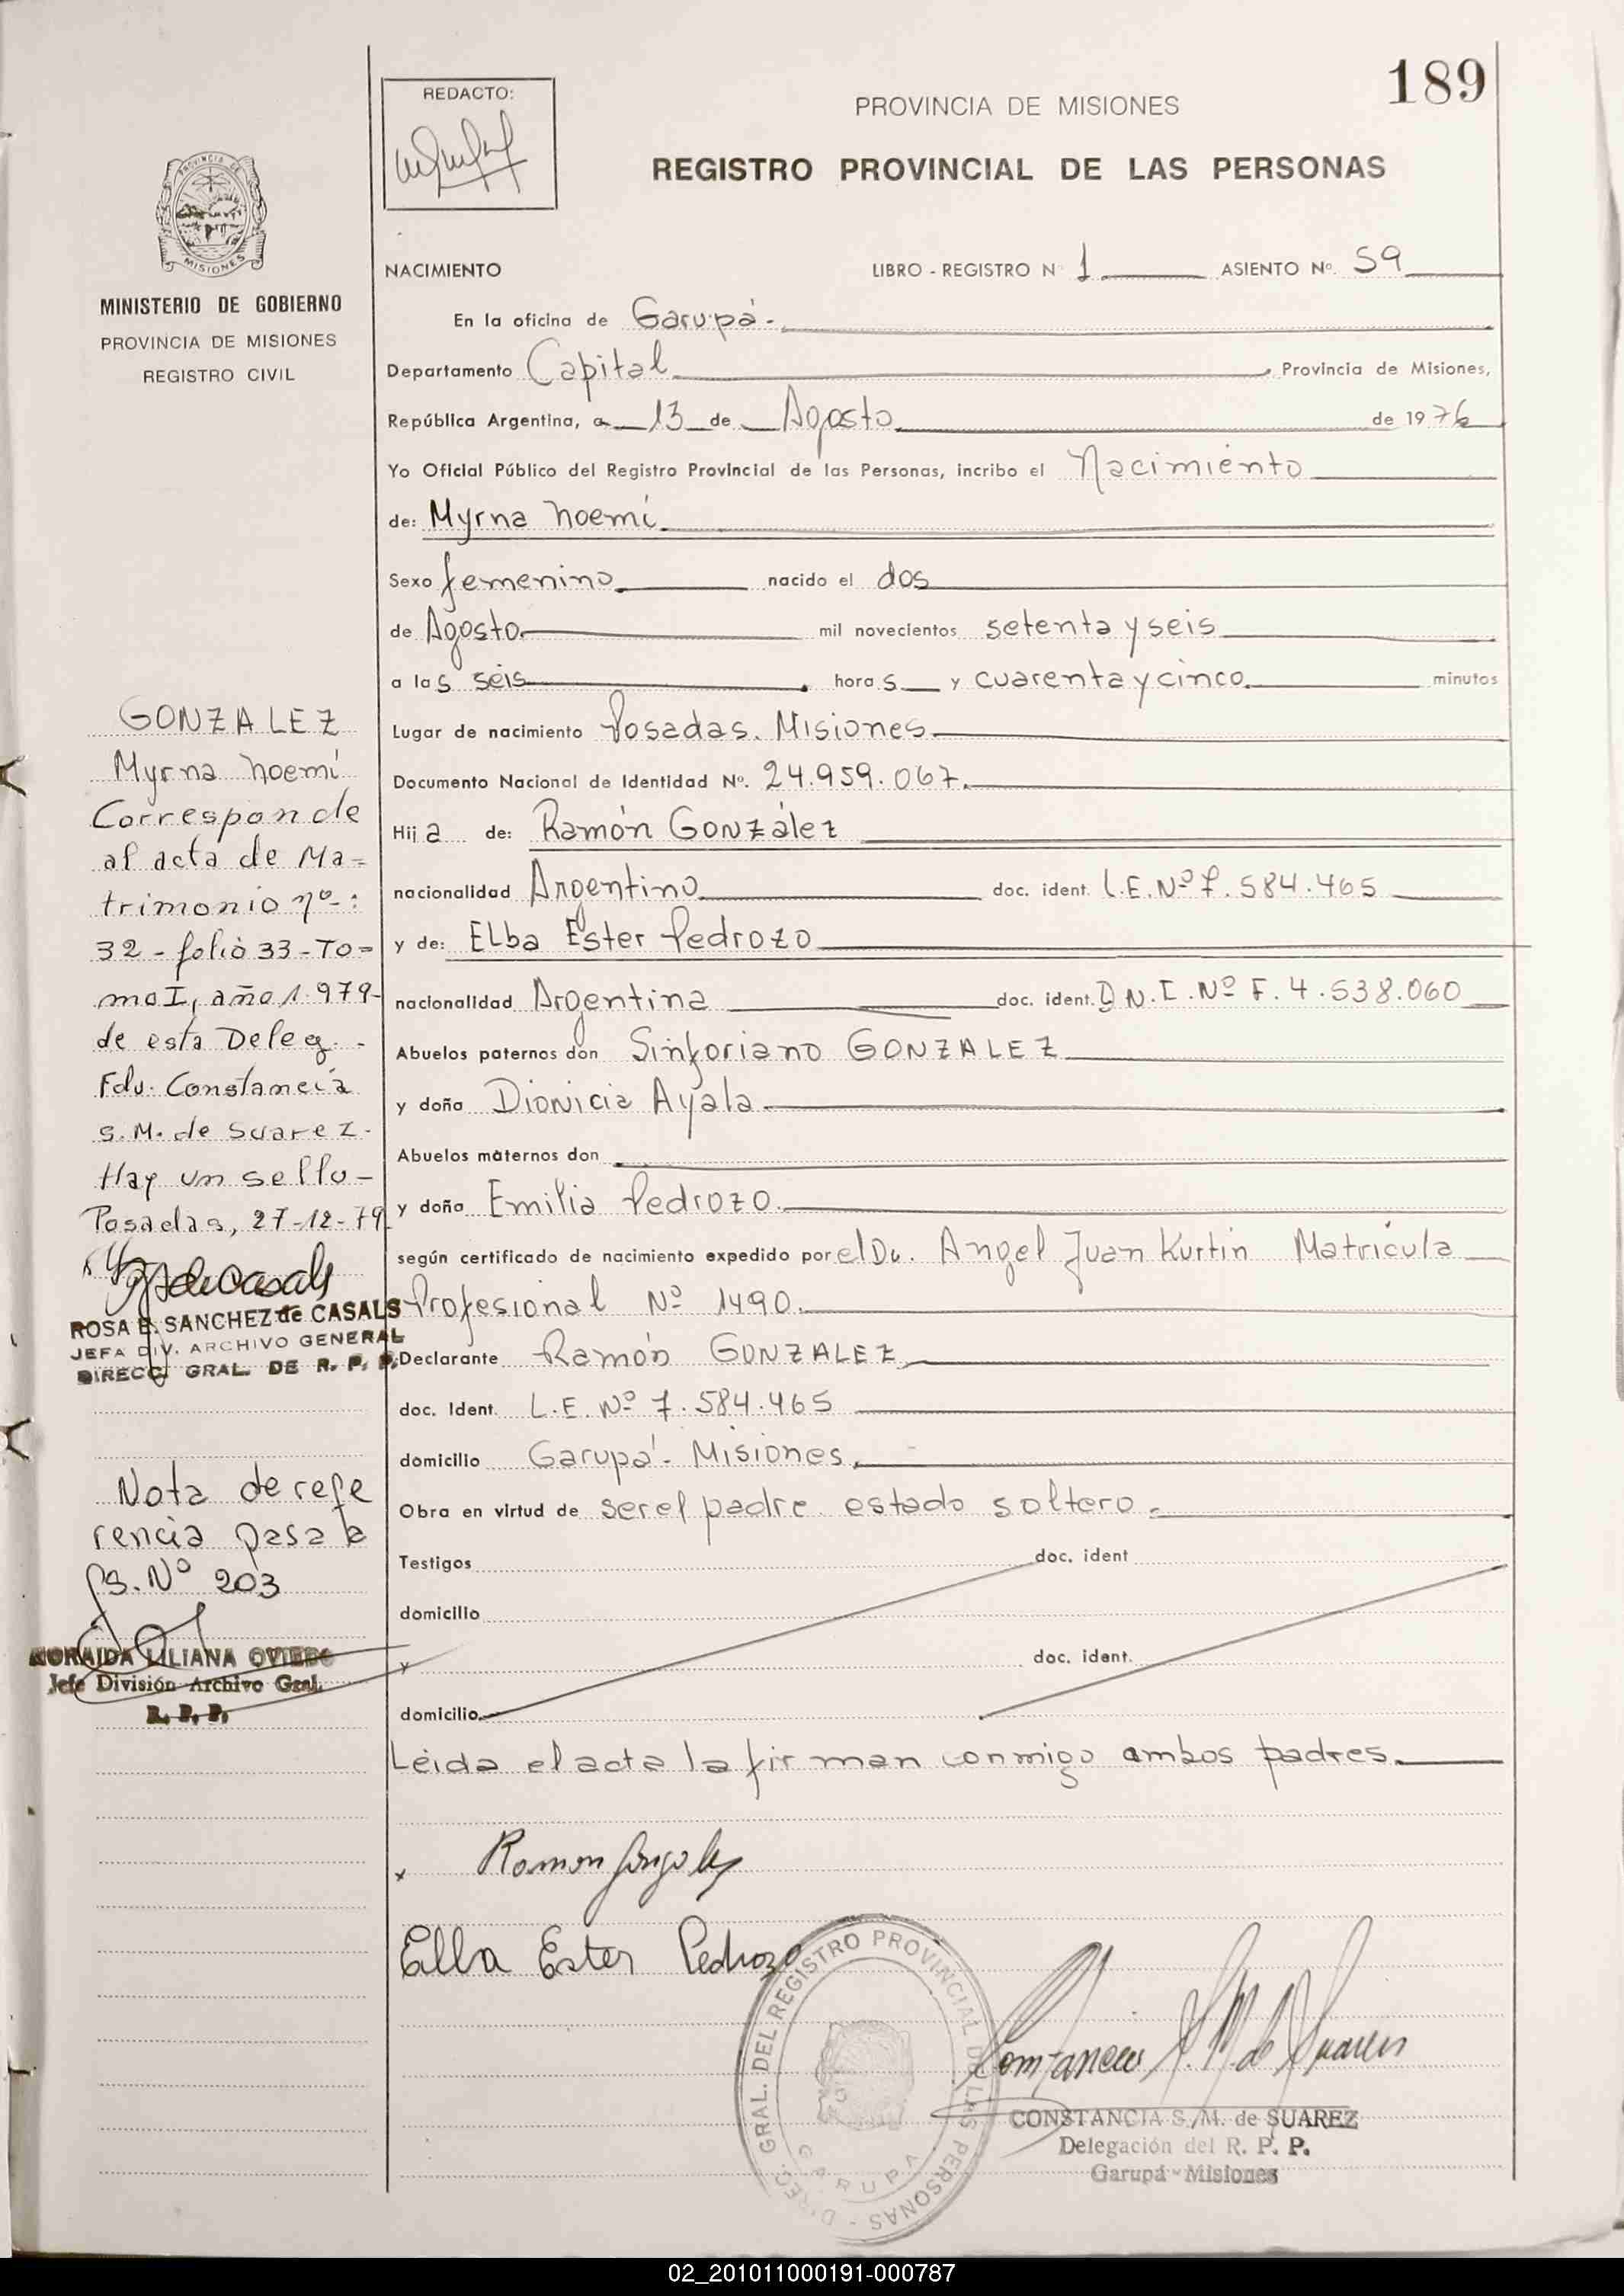 189
REDACTO:
PROVINCIA DE MISIONES
REGISTRO PROVINCIAL DE LAS PERSONAS
PROVINCIA DE
MISIONES
MINISTERIO DE GOBIERNO
PROVINCIA DE MISIONES
REGISTRO CIVIL
NACIMIENTO LIBRO - REGISTRO N 1 ASIENTO Nº. 59
En la oficina de Garupá-.
Departamento Capital , Provincia de Misiones,
República Argentina, a 13 de Agosto de 1976
Yo Oficial Público del Registro Provincial de las Personas, incribo el Nacimiento
de: Myrna Noemí.
Sexo femenino nacido el dos
de Agosto. mil novecientos setenta y seis
a las seis hora s y cuarenta y cinco. minutos
Lugar de nacimiento Posadas. Misiones.
Documento Nacional de Identidad Nº. 24.959.067.
Hija de: Ramón González
nacionalidad Argentino doc. ident. L.E. Nº 7.584.465
y de: Elba Ester Pedrozo
nacionalidad Argentina doc. ident. D.N.I. Nº F. 4.538.060
Abuelos paternos don Sinforiano GONZALEZ
y doña Dionicia Ayala.
Abuelos maternos don
y doña Emilia Pedrozo.
según certificado de nacimiento expedido por el Dr. Angel Juan Kurtin Matrícula
Profesional Nº 1490.
Declarante Ramón GONZALEZ
doc. Ident. L.E. Nº 7.584.465
domicilio Garupá- Misiones.
Obra en virtud de ser el padre. estado soltero.
Testigos doc. ident
domicilio
y doc. ident.
domicilio
Leida el acta la firman conmigo ambos padres.
GONZALEZ
Myrna Noemí
Corresponde
al acta de Ma=
trimonio nº:
32 - folio 33 - To=
mo I, año 1.979-
de esta Deleg. -
Fdo. Constancia
S. M. de Suarez -
Hay un sello -
Posadas, 27-12-79
ROSA E. SANCHEZ de CASALS
JEFA DIV. ARCHIVO GENERAL
DIRECC. GRAL. DE R. P. P.
Nota de refe
rencia pasa a
fs. Nº 203
NORAIDA LILIANA OVIEDO
Jefe División Archivo Gral.
R. P. P.
Ramon Gonzalez
Elba Ester Pedrozo
DIREC. GRAL. DEL REGISTRO PROVINCIAL DE LAS PERSONAS -
GARUPA
Constancia S. M. de Suarez
CONSTANCIA S. M. de SUAREZ
Delegación del R. P. P.
Garupá - Misiones
02_201011000191-000787